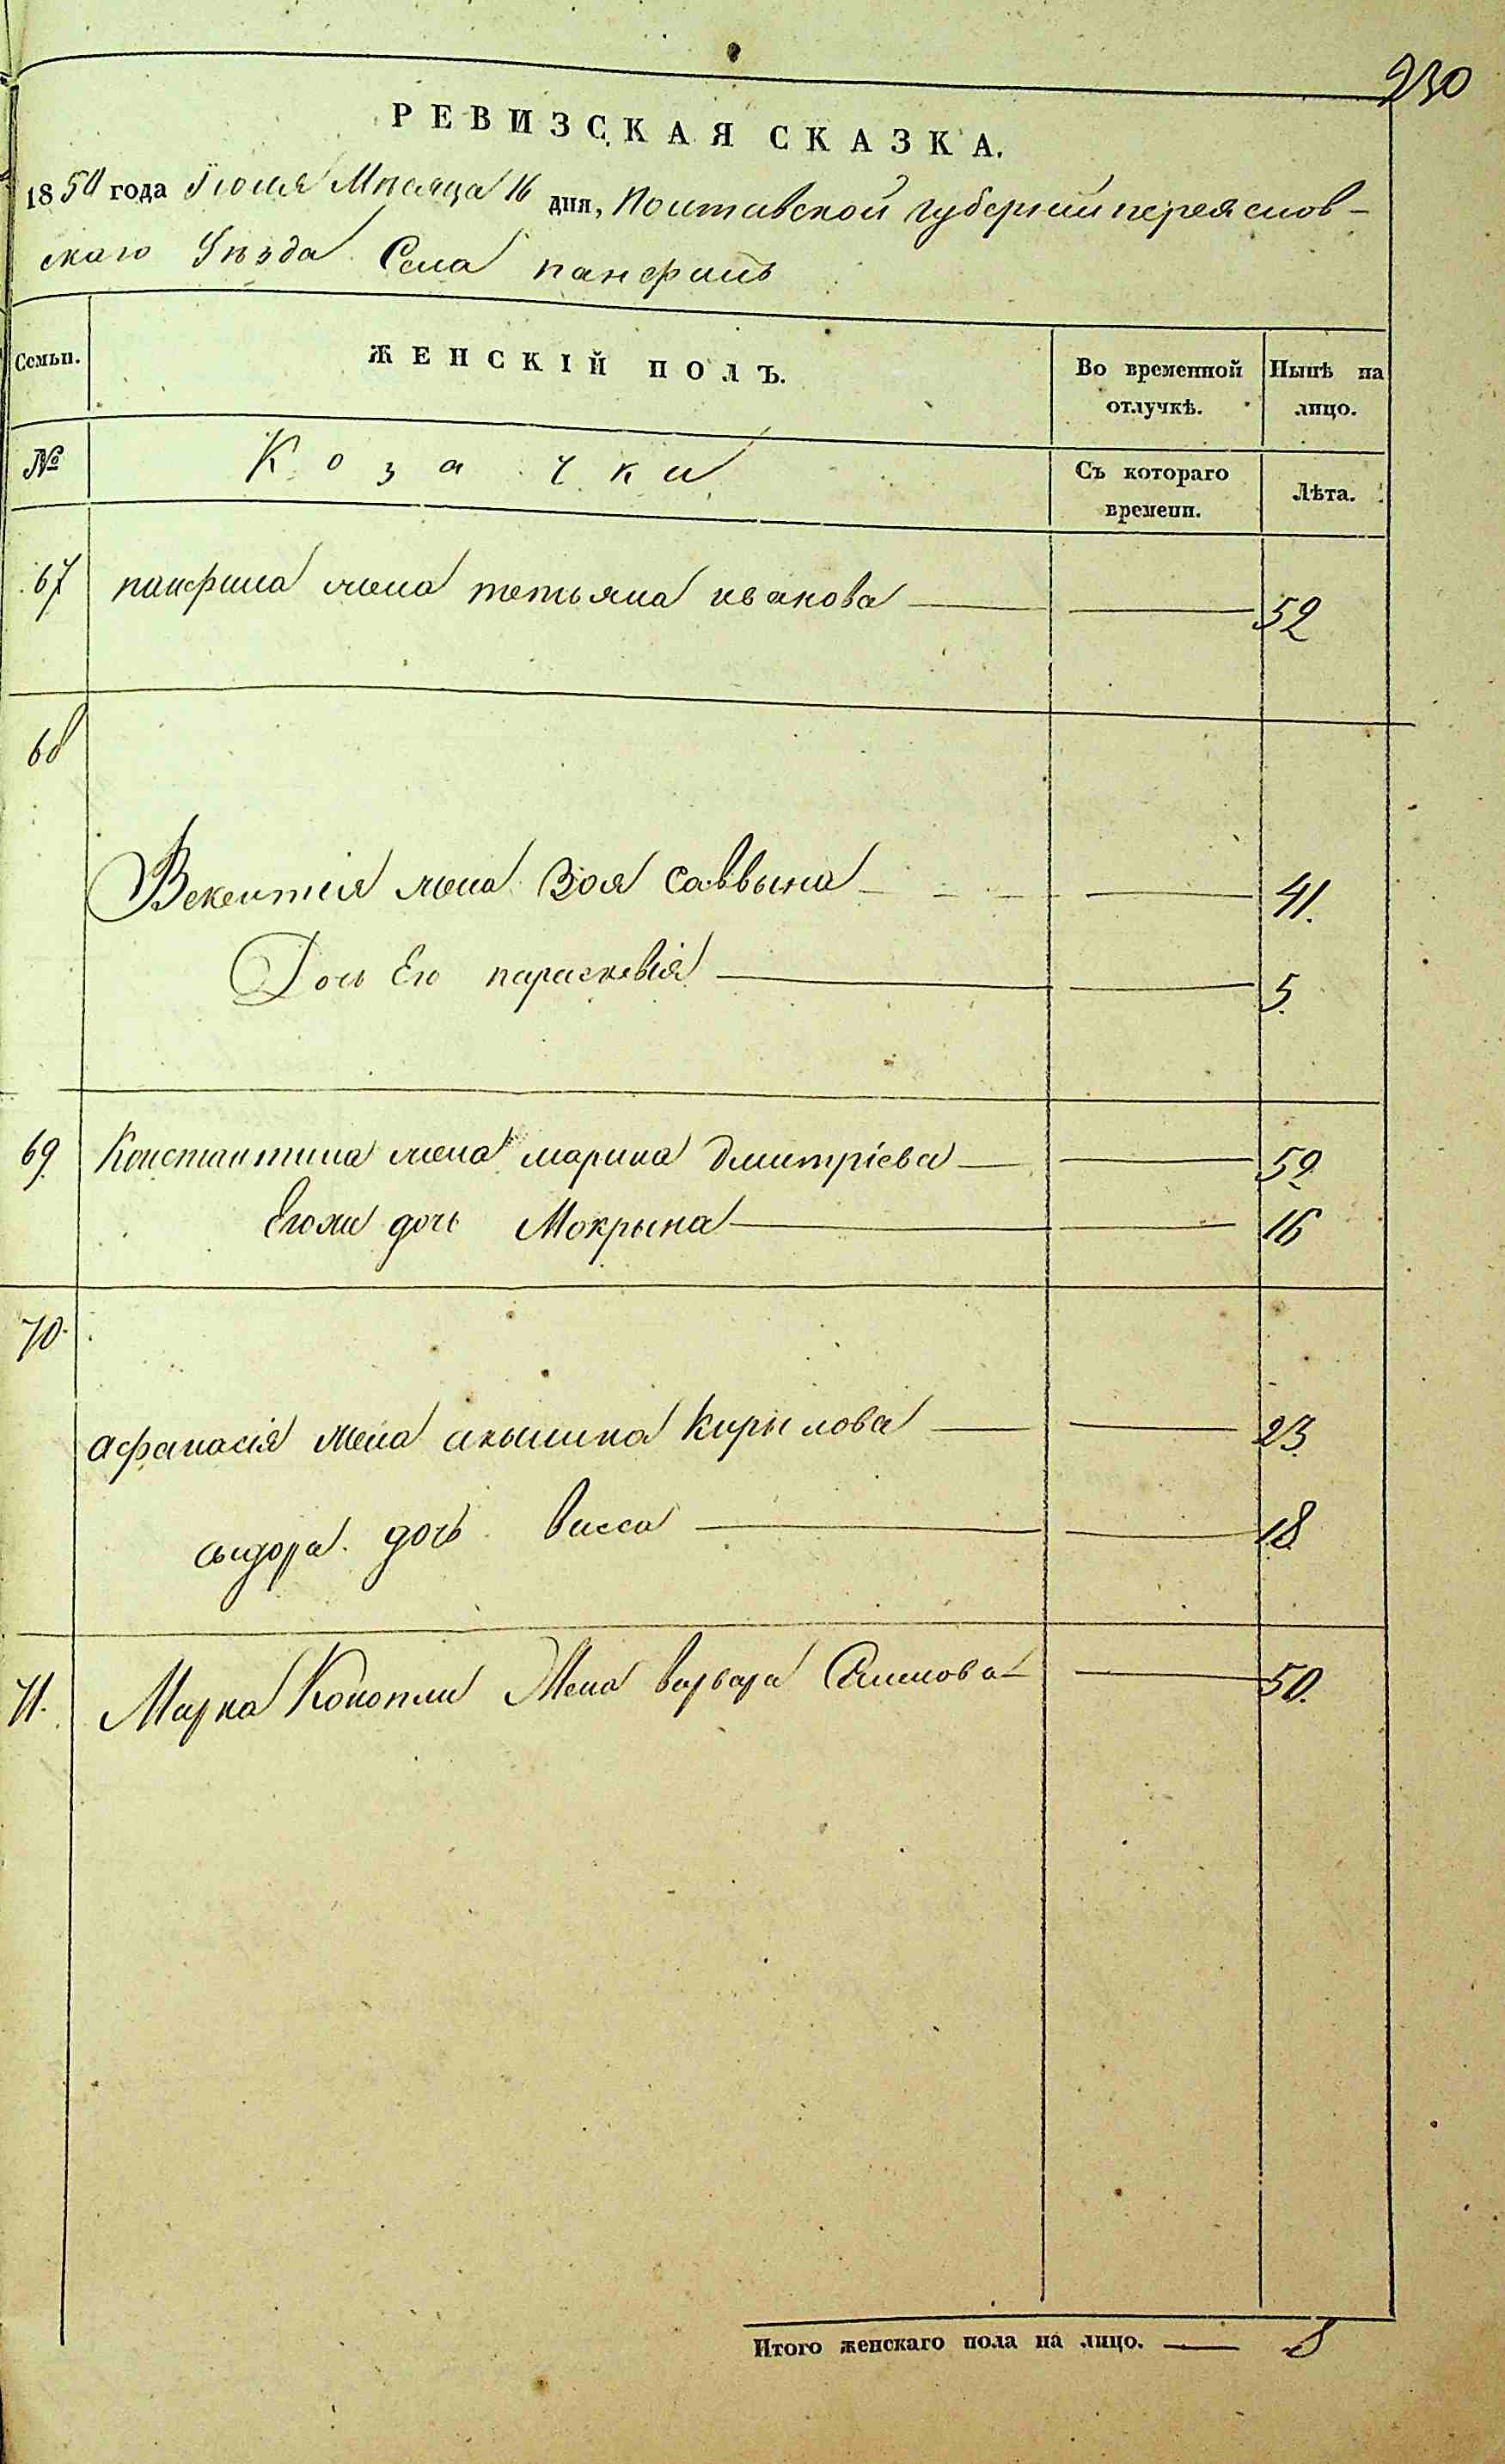 230
РЕВИЗСКАЯ СКАЗКА.
1850 года Іюля Мѣсяца 16 дня, Полтавской губерніи переяслов-
скаго Уѣзда Села панфилъ
Семьи. ЖЕНСКІЙ ПОЛЪ. Во временной отлучкѣ. Нынѣ на лицо.
№ Козачки Съ котораго времени. Лѣта.
67 панфила жена тетьяна иванова 52
68
Векентия жена Зоя Саввына 41.
Дочь Его параскевія 5.
69. Константина жена марина дмитріева 59
Егожъ дочь Мокрына 16
70.
афанасія жена акылина Кирилова 23.
сыдора дочь васса 18.
71. Марка Конопли Жена варвара 50.
Итого женскаго пола на лицо. 8